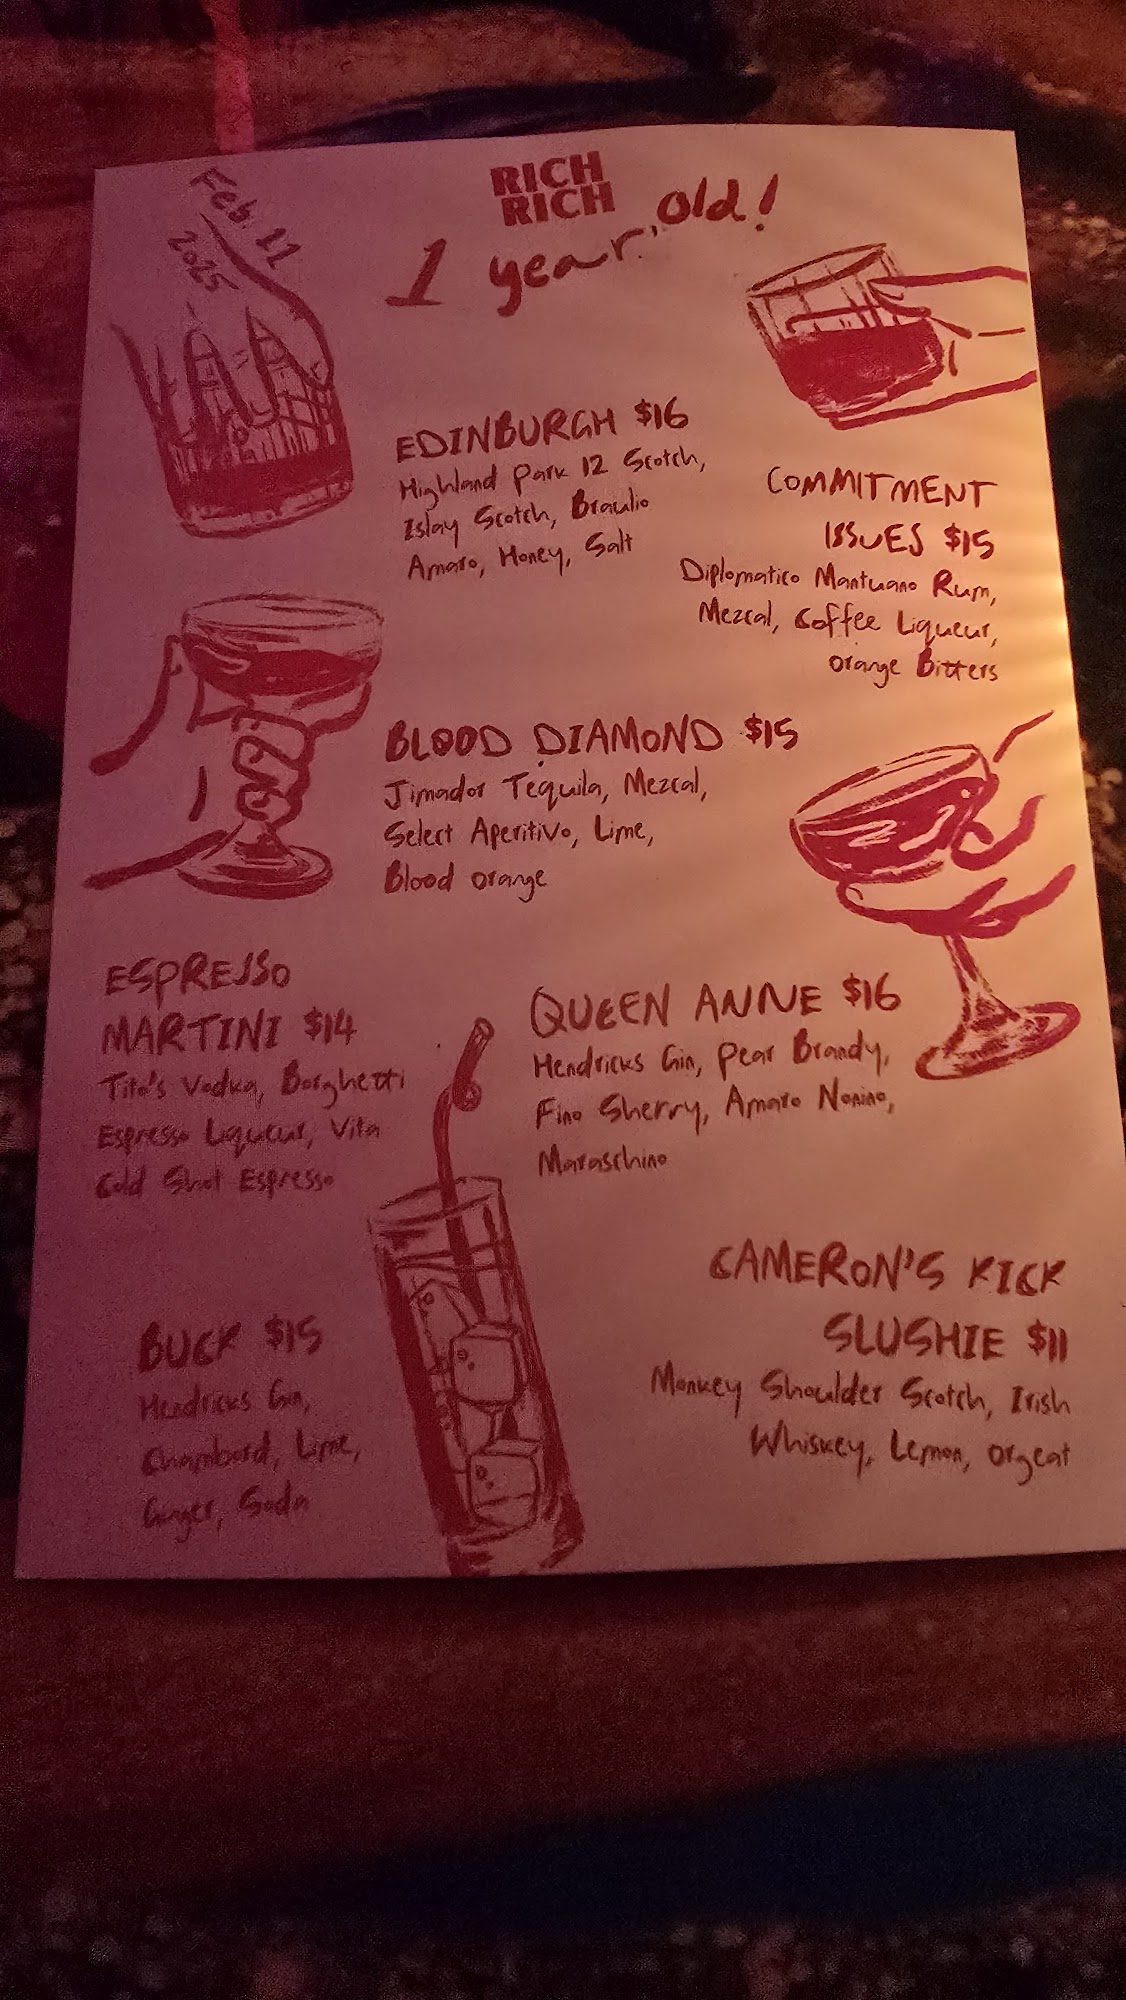 Feb. 11
2025
RICH
RICH
1 year old!
EDINBURGH $16
Highland Park 12 Scotch,
Islay Scotch, Braulio
Amaro, Honey, Salt
COMMITMENT
ISSUES $15
Diplomatico Mantuano Rum,
Mezcal, Coffee Liqueur,
Orange Bitters
BLOOD DIAMOND $15
Jimador Tequila, Mezcal,
Select Aperitivo, Lime,
Blood Orange
ESPRESSO
MARTINI $14
Tito's Vodka, Borghetti
Espresso Liqueur, Vita
Cold Shot Espresso
QUEEN ANNE $16
Hendricks Gin, Pear Brandy,
Fino Sherry, Amaro Nonino,
Maraschino
BUCK $15
Hendricks Gin,
Chambord, Lime,
Ginger, Soda
CAMERON'S KICK
SLUSHIE $11
Monkey Shoulder Scotch, Irish
Whiskey, Lemon, Orgeat